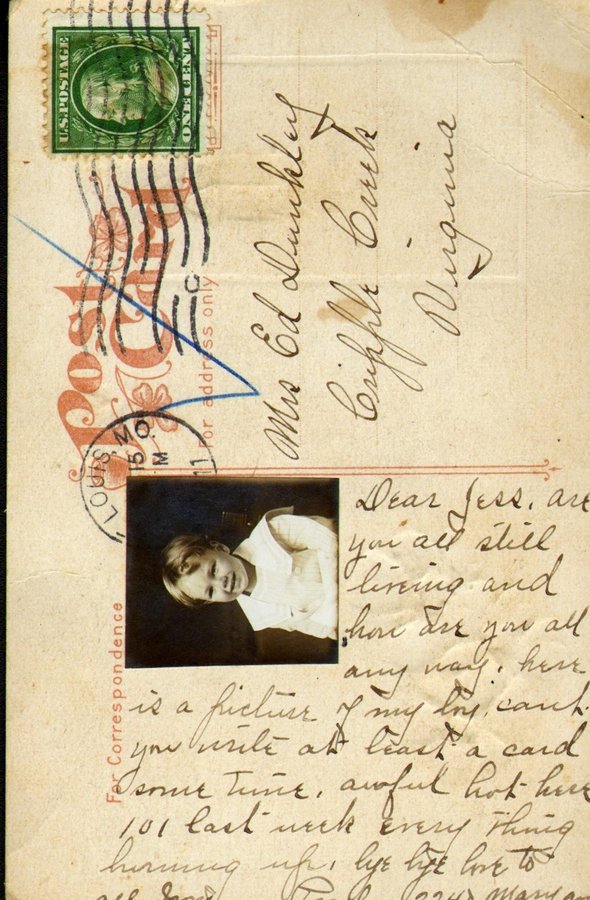 U.S. POSTAGE
ONE CENT
Post Card
For address only
LOUIS. MO.
15
M
11
Mrs Ed Dunkley
Cripple Creek
Virginia
For Correspondence
Dear Jess, are
you all still
liveing and
how are you all
any way, here
is a picture of my boy, cant
you write at least a card
some time, awful hot here
101 last week every thing
burning up, bye bye love to
all from